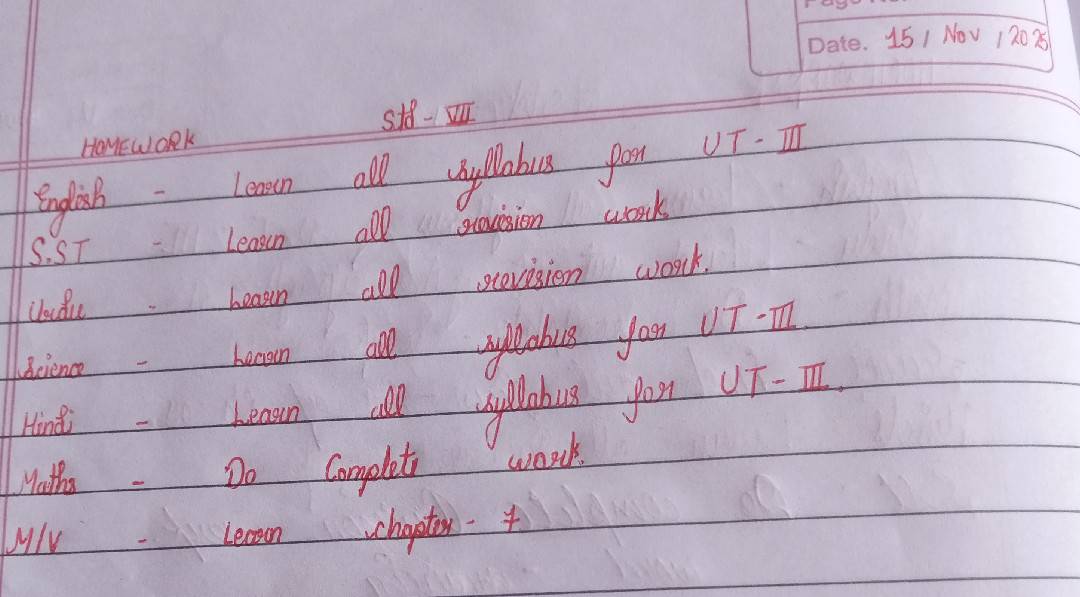 Date. 15 / Nov / 2025
Std - VII
HOMEWORK
English - Learn all syllabus for UT - III
S.ST - Learn all revision work
Urdu - Learn all revision work.
Science - Learn all syllabus for UT - III
Hindi - Learn all syllabus for UT - III.
Maths - Do Complete work.
M/V - Learn chapter - 7